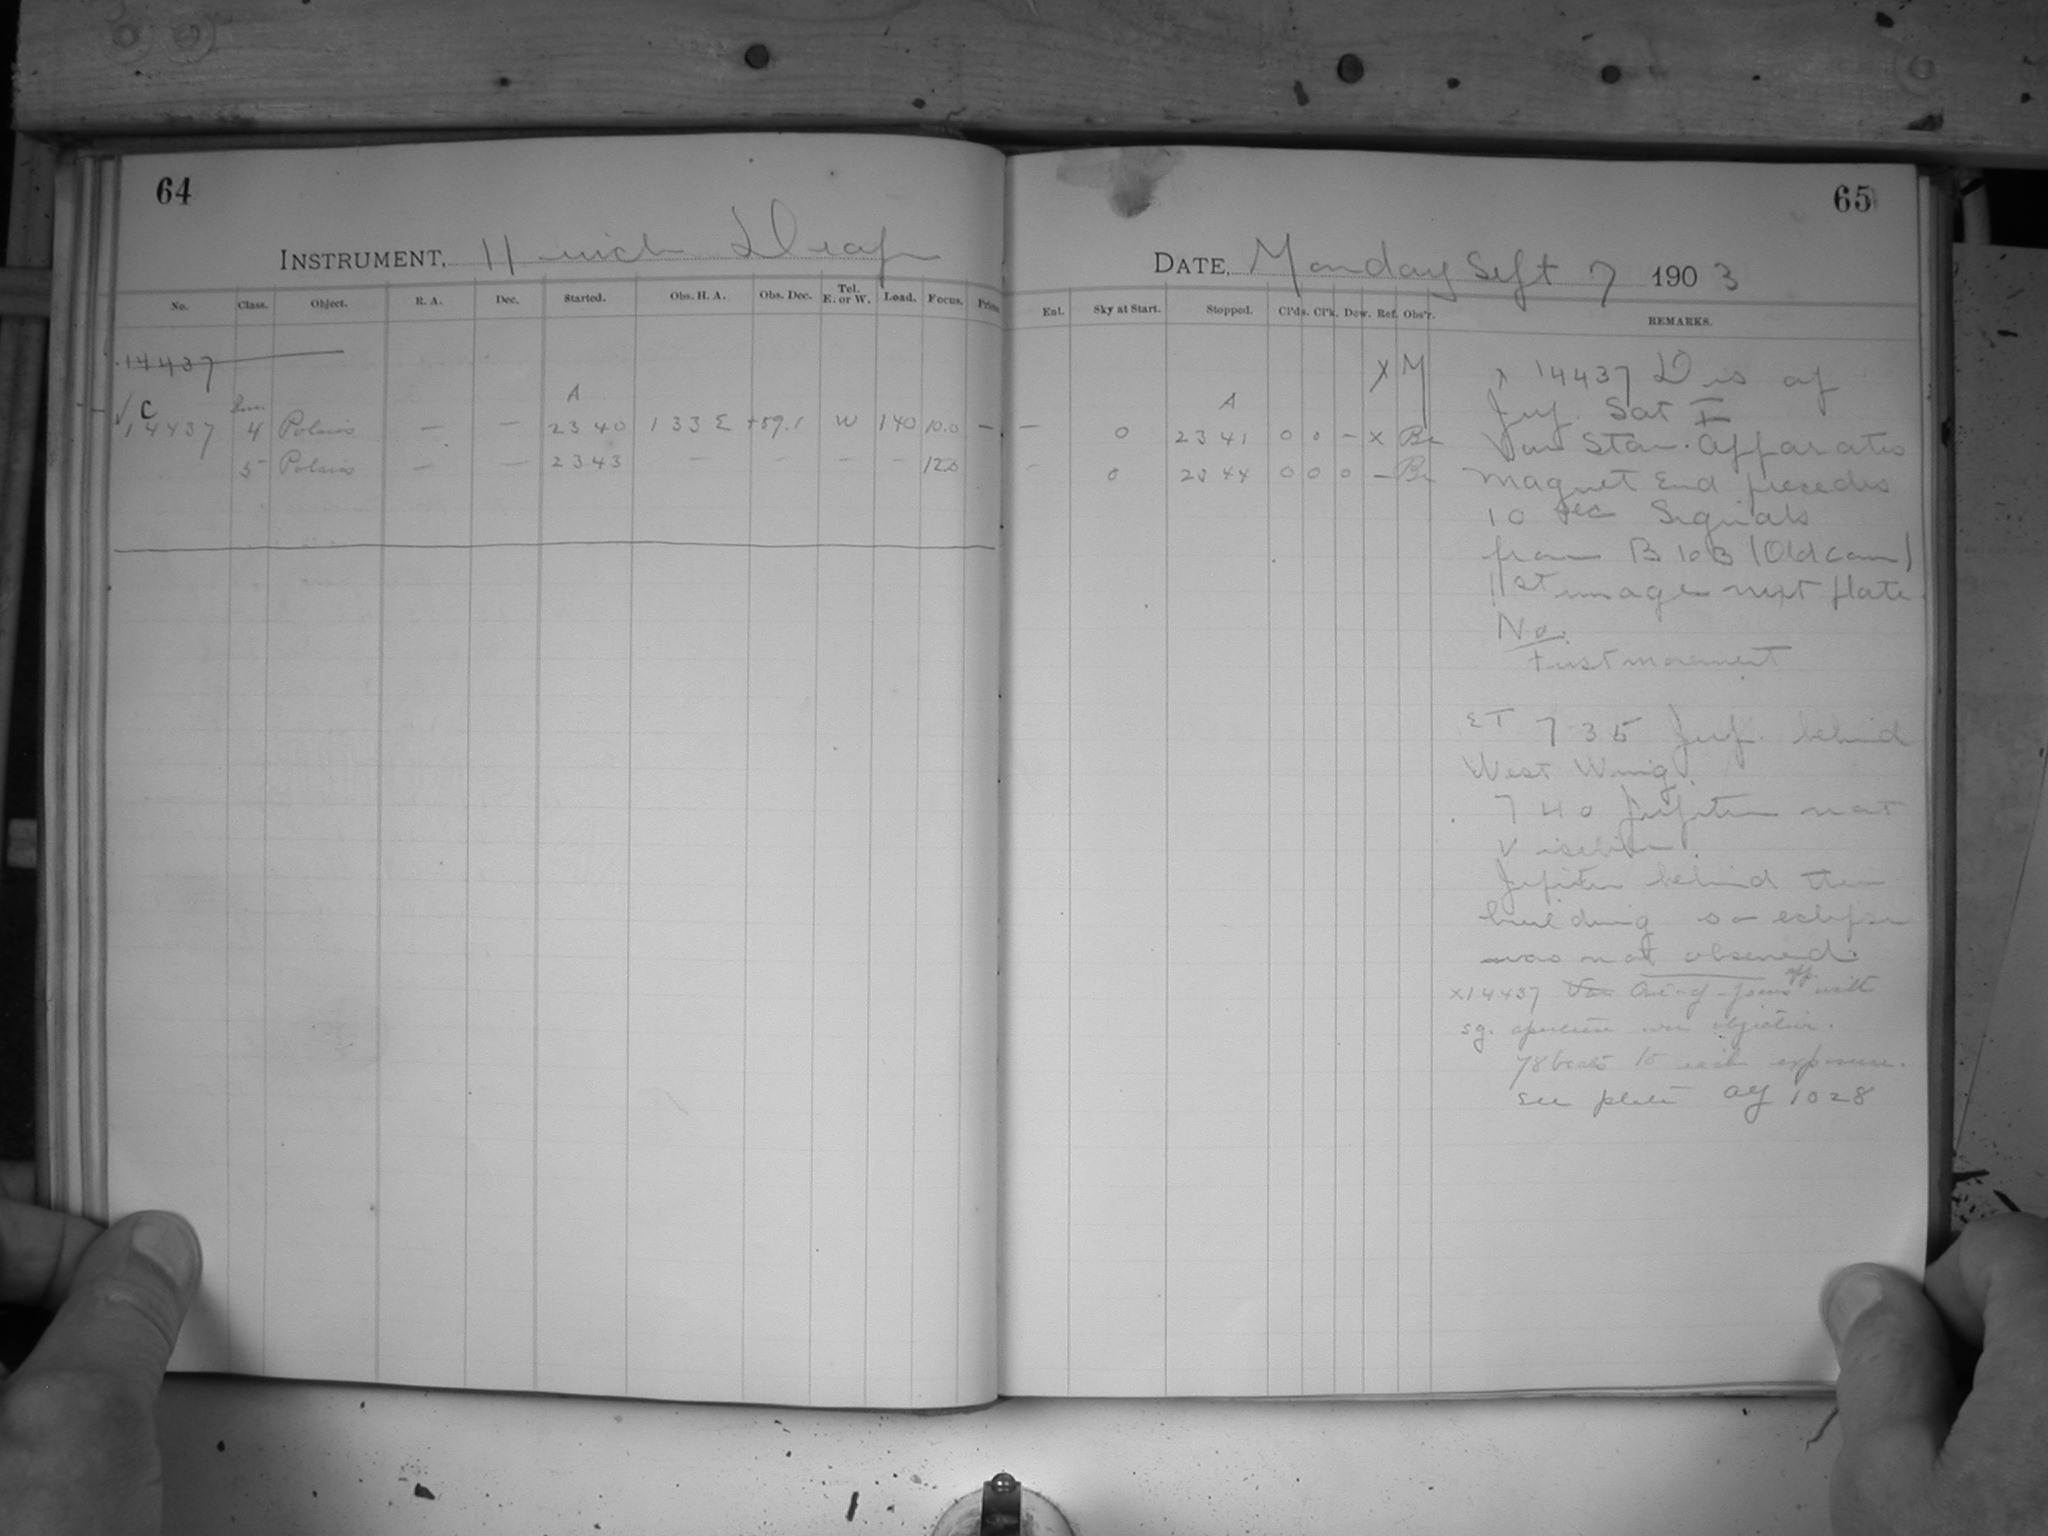 64
INSTRUMENT, 11 inch Drap
No. Class. Object. R. A. Dec. Started. Obs. H. A. Obs. Dec. Tel. E. or W. Load. Focus. Prism
14437
A
√ C
14437 4 Polaris — — 23 40 1 33 E +89.1 W 140 10.0 —
5 Polaris — — 23 43 — — — — 12.0
65
DATE, Monday Sept 7 1903
Enl. Sky at Start. Stopped. Cl'ds. Cl'k. Dew. Ref. Obs'r. REMARKS.
X M
A
— 0 23 41 0 0 — x Br
— 0 23 44 0 0 0 — Br
x 14437 D is of
Jup. Sat I
Var Star. Apparatus
Magnet End precedes
10 sec Signals
from B 10B (Old cam)
11st image next plate
No.
First movement
ET 7 35 Jup. behind
West Wing.
7 40 Jupiter not
visible.
Jupiter behind the
building so eclipse
was not observed.
x14437 Out-of-focus app. with
sq. aperture over objective.
78 beats to each exposure.
see plate ay 1028